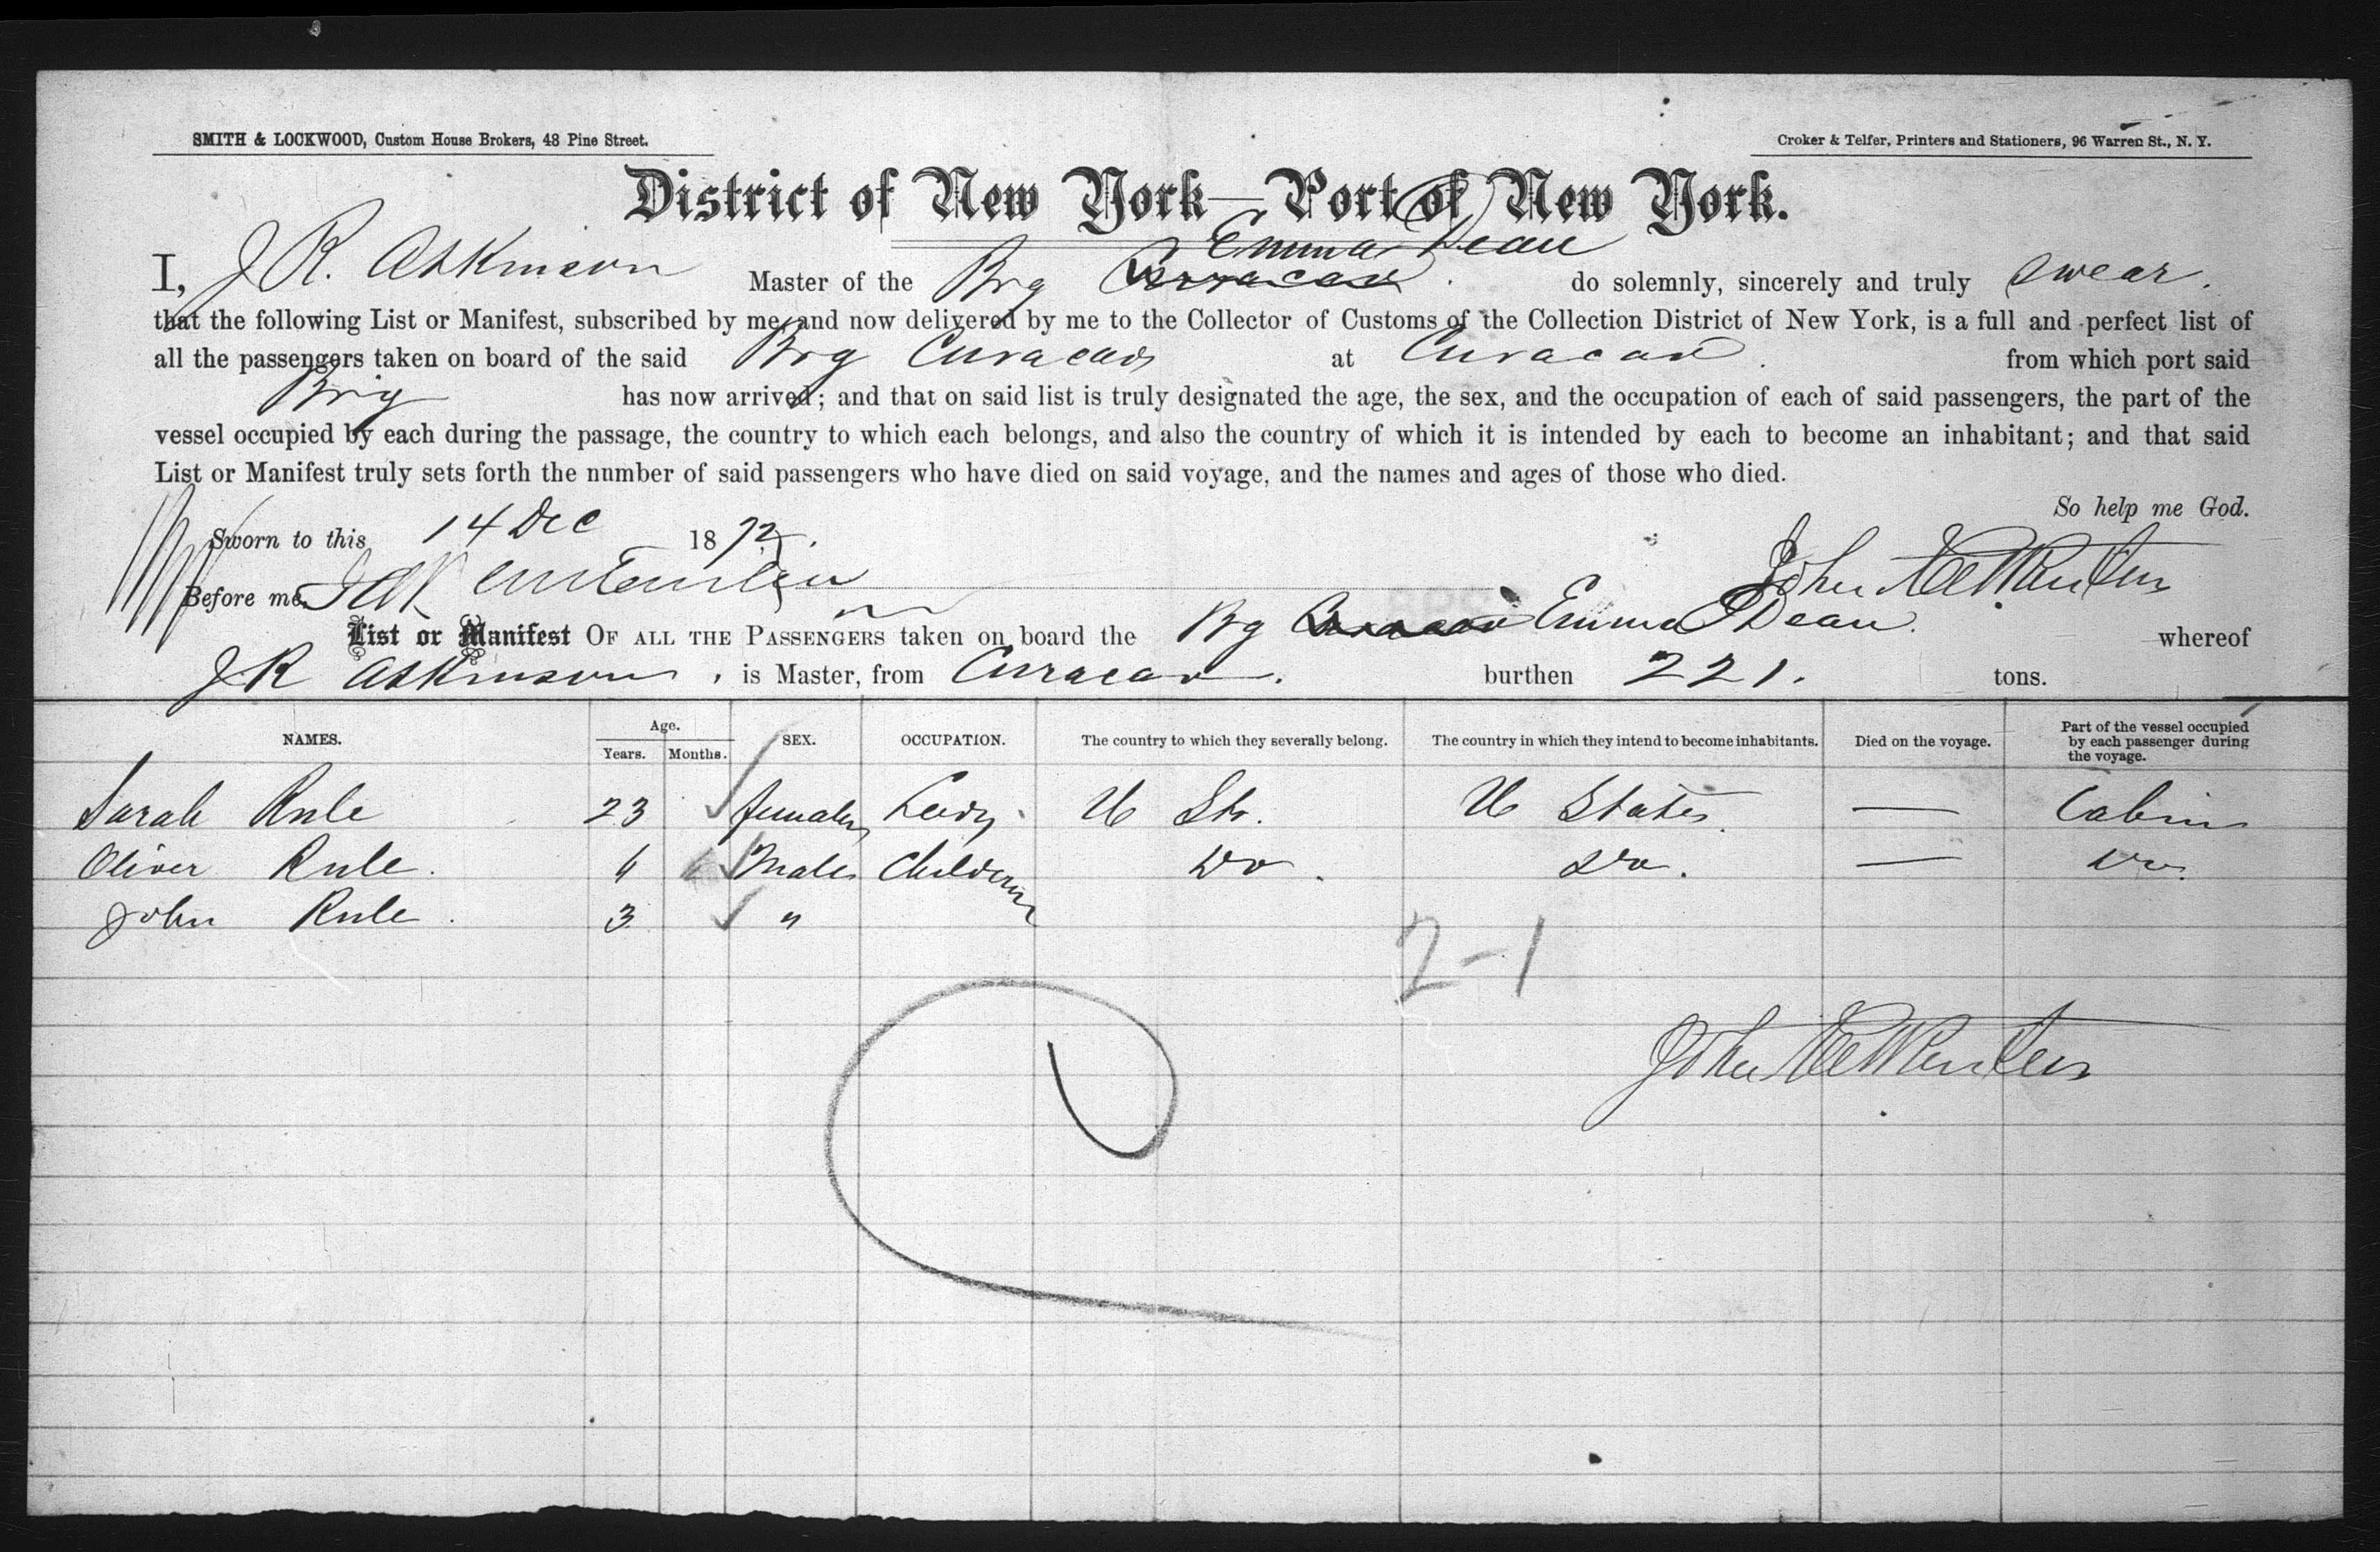 SMITH & LOCKWOOD, Custom House Brokers, 48 Pine Street.
Croker & Telfer, Printers and Stationers, 96 Warren St., N. Y.
District of New York—Port of New York.
Emma Dean
I, J R. Atkinson Master of the Brg Curracao do solemnly, sincerely and truly swear.
that the following List or Manifest, subscribed by me, and now delivered by me to the Collector of Customs of the Collection District of New York, is a full and perfect list of
all the passengers taken on board of the said Brg Curacao at Curacao from which port said
Brig has now arrived; and that on said list is truly designated the age, the sex, and the occupation of each of said passengers, the part of the
vessel occupied by each during the passage, the country to which each belongs, and also the country of which it is intended by each to become an inhabitant; and that said
List or Manifest truly sets forth the number of said passengers who have died on said voyage, and the names and ages of those who died.
So help me God.
Sworn to this 14 Dec 1872.
Before me, John
List or Manifest OF ALL THE PASSENGERS taken on board the Brg Emma Dean. whereof
J R Atkinson, is Master, from Curacao. burthen 221. tons.
NAMES. Age. Years. Months. SEX. OCCUPATION. The country to which they severally belong. The country in which they intend to become inhabitants. Died on the voyage. Part of the vessel occupied by each passenger during the voyage.
Sarah Rule 23 female Lady U Sts. U States. — Cabin
Oliver Rule. Males Children Do. Do. — Do.
John Rule. 3 "
2-1
John